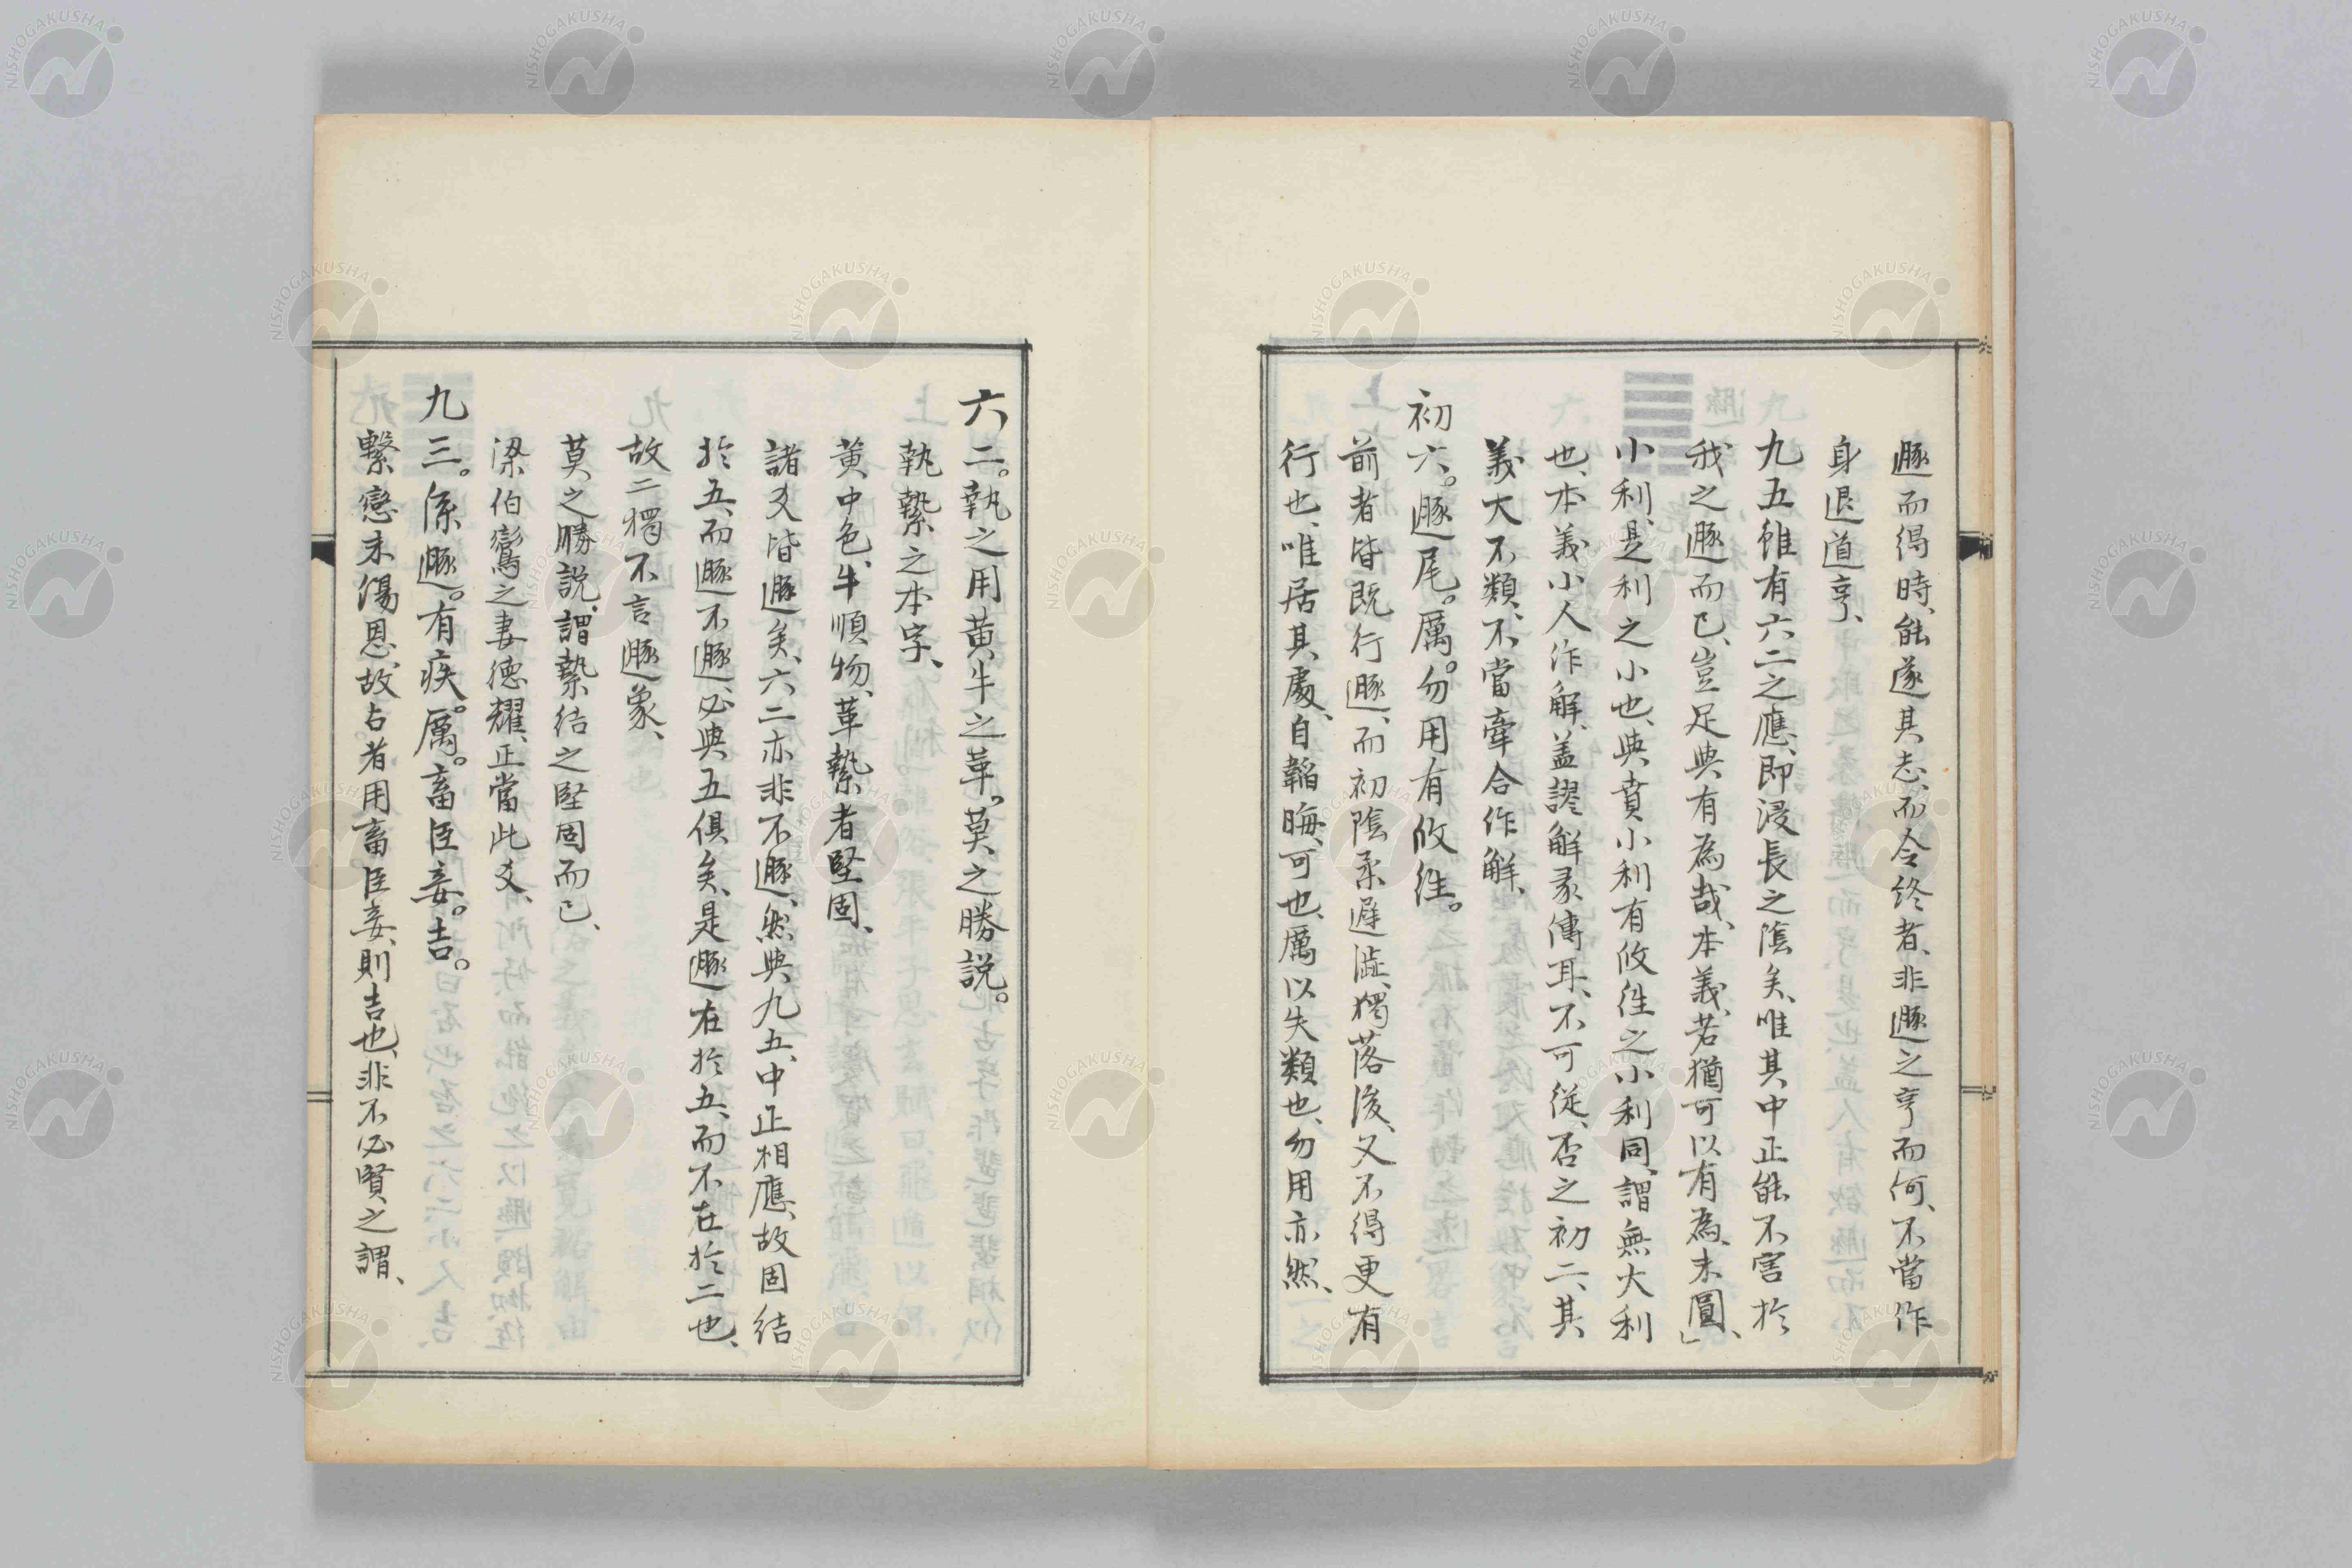 遯而得時、能遂其志、而令終者、非遯之亨而何、不當作
身退道亨、
九五雖有六二之應、即浸長之陰矣、唯其中正能不害於
我之遯而已、豈足與有為哉、本義、若猶可以有為、未圓、」
小利、是利之小也、與賁小利有攸往之小利同、謂無大利
也、本義小人作解、盖謬解彖傳耳、不可從、否之初二、其
義大不類、不當牽合作解、
初六。遯尾。厲。勿用有攸往。
前者皆既行遯、而初陰柔遲澁、獨落後、又不得更有
行也、唯居其處、自韜晦、可也、厲以失類也、勿用亦然、
六二。執之用黄牛之革。莫之勝説。
執縶之本字、
黄中色、牛順物、革縶者堅固、
諸爻皆遯矣、六二亦非不遯、然與九五、中正相應、故固結
於五、而遯不遯、必與五俱矣、是遯在於五、而不在於二也、
故二獨不言遯象、
莫之勝説、謂縶結之堅固而已、
梁伯鸞之妻德耀、正當此爻、
九三。係遯。有疾。厲。畜臣妾。吉。
繫戀未傷恩、故占者用畜臣妾、則吉也、非不必賢之謂、
NISHOGAKUSHA